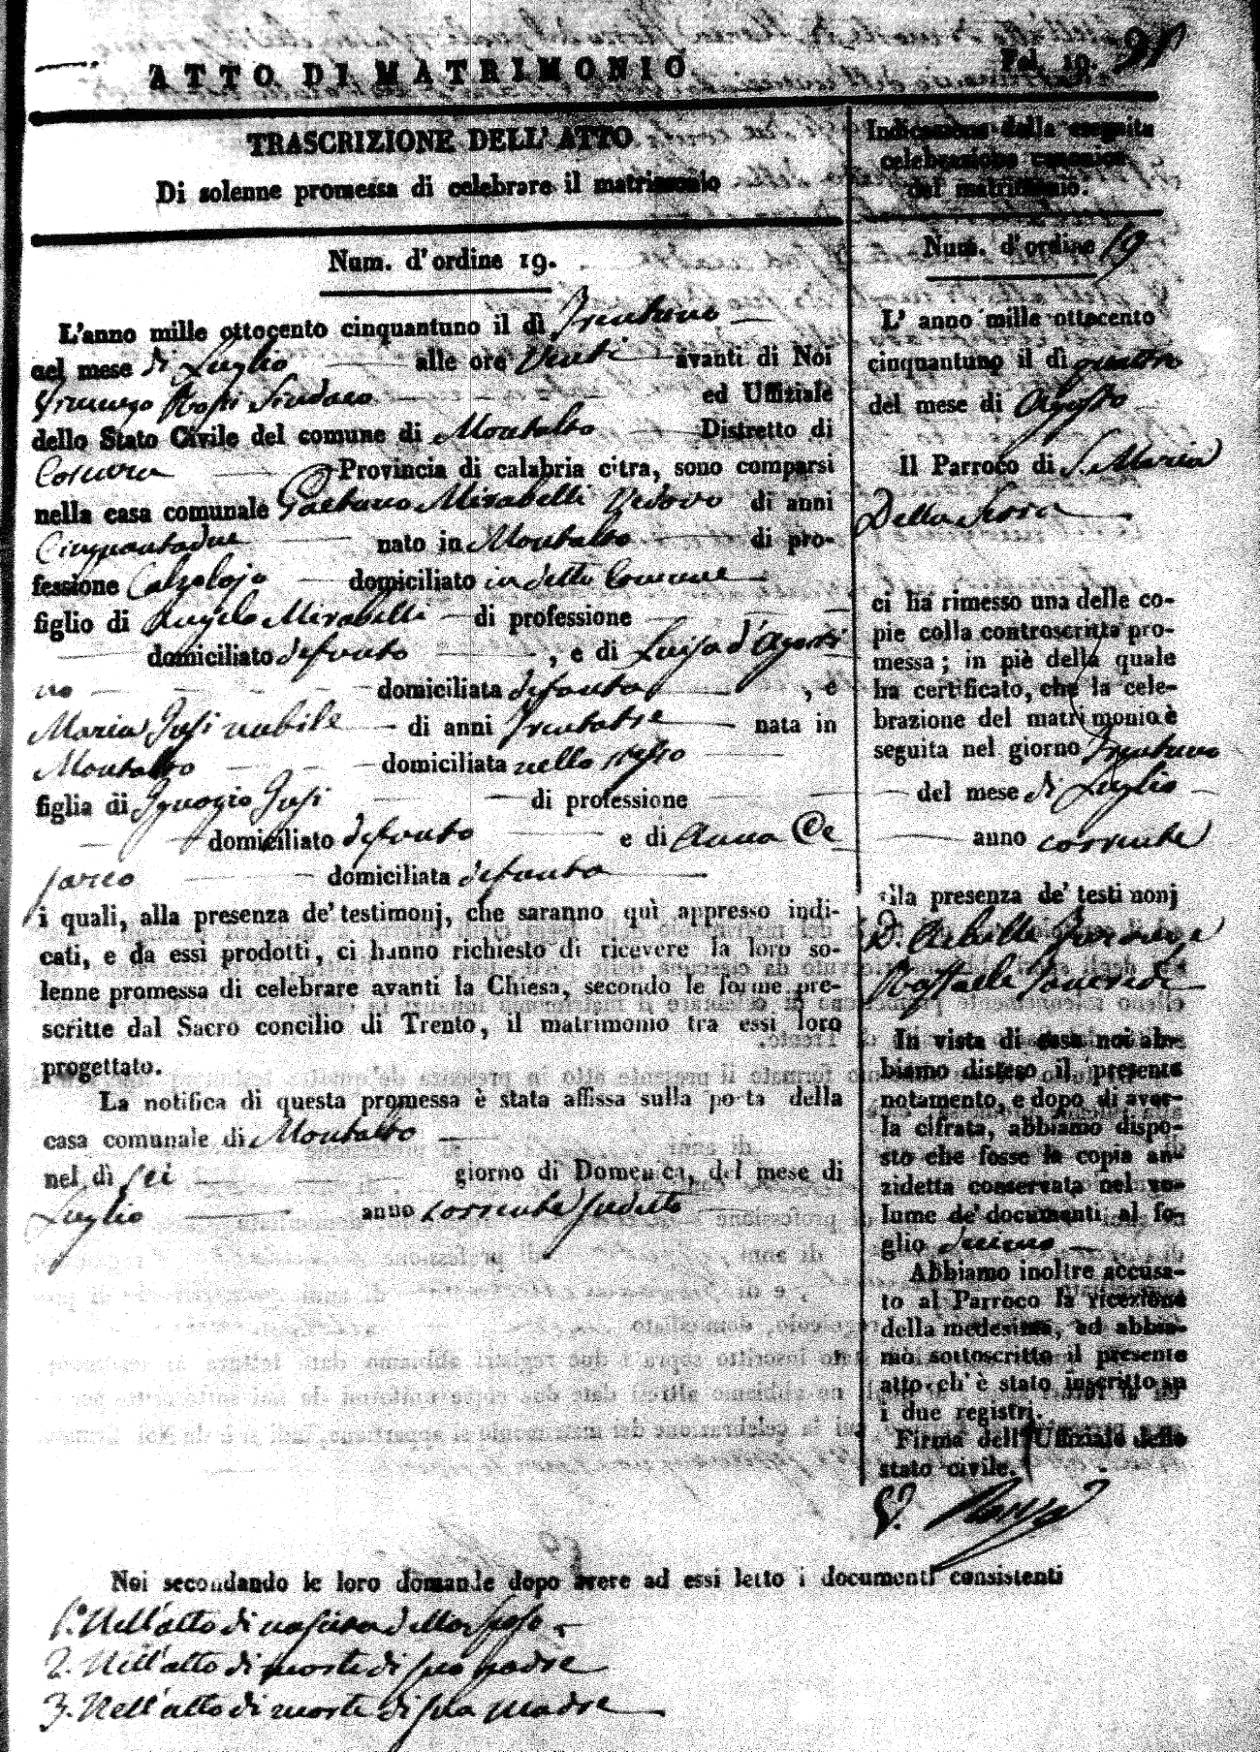 ATTO DI MATRIMONIO
Fol. 19.
TRASCRIZIONE DELL'ATTO
Di solenne promessa di celebrare il matrimonio
Num. d'ordine 19.
L'anno mille ottocento cinquantuno il dì Trentuno
nel mese di Luglio alle ore Venti avanti di Noi
Sindaco ed Uffiziale
dello Stato Civile del comune di Montalto Distretto di
Cosenza Provincia di calabria citra, sono comparsi
nella casa comunale Gaetano Mirabelli Vedovo di anni
Cinquantadue nato in Montalto di pro-
fessione Calzolojo domiciliato in detto Comune
figlio di Angelo Mirabelli di professione
domiciliato defonto , e di Luisa d'Agosti
no domiciliata defonta , e
Maria Iusi nubile di anni Trentatre nata in
Montalto domiciliata nello stesso
figlia di Ignazio Iusi di professione
domiciliato defonto e di Anna De
domiciliata defonta
i quali, alla presenza de' testimonj, che saranno quì appresso indi-
cati, e da essi prodotti, ci hanno richiesto di ricevere la loro so-
lenne promessa di celebrare avanti la Chiesa, secondo le forme pre-
scritte dal Sacro concilio di Trento, il matrimonio tra essi loro
progettato.
La notifica di questa promessa è stata affissa sulla porta della
casa comunale di Montalto
nel dì sei giorno di Domenica, del mese di
Luglio anno corrente sudetto
Indicazione della eseguita
celebrazione canonica
del matrimonio.
Num. d'ordine 19
L' anno mille ottocento
cinquantuno il dì quattro
del mese di Agosto
Il Parroco di S. Maria
Della Serra
ci ha rimesso una delle co-
pie colla controscritta pro-
messa; in piè della quale
ha certificato, che la cele-
brazione del matrimonio è
seguita nel giorno Trentuno
del mese di Luglio
anno corrente
alla presenza de' testimonj
D. Achille
Raffaele
In vista di essa noi ab-
biamo disteso il presente
notamento, e dopo di aver-
la cifrata, abbiamo dispo-
sto che fosse la copia an-
zidetta conservata nel vo-
lume de' documenti al fo-
glio
Abbiamo inoltre accusa-
to al Parroco la ricezione
della medesima, ed abbia-
mo sottoscritto il presente
atto ch' è stato inscritto su
i due registri.
Firma dell' Uffiziale dello
stato civile.
Noi secondando le loro domande dopo avere ad essi letto i documenti consistenti
1.° Nell'atto di nascita dello sposo
2. Nell'atto di morte di suo padre
3. Nell'atto di morte di sua madre